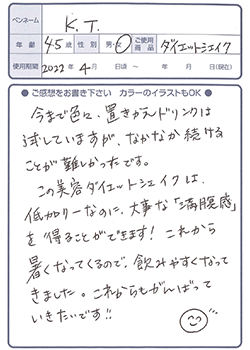 ペンネーム K.T.
年齢 45歳 性別 男・女 ご使用商品 ダイエットシェイク
使用期間 2022年 4月 日頃 ~ 年 月 日(現在)
● ご感想をお書き下さい カラーのイラストもOK ●
今まで色々、置きかえドリンクは
試していますが、なかなか続ける
ことが難しかったです。
この美容ダイエットシェイクは、
低カロリーなのに、大事な「満腹感」
を得ることができます! これから
暑くなってくるので、飲みやすくなって
きました。これからもがんばって
いきたいです!!